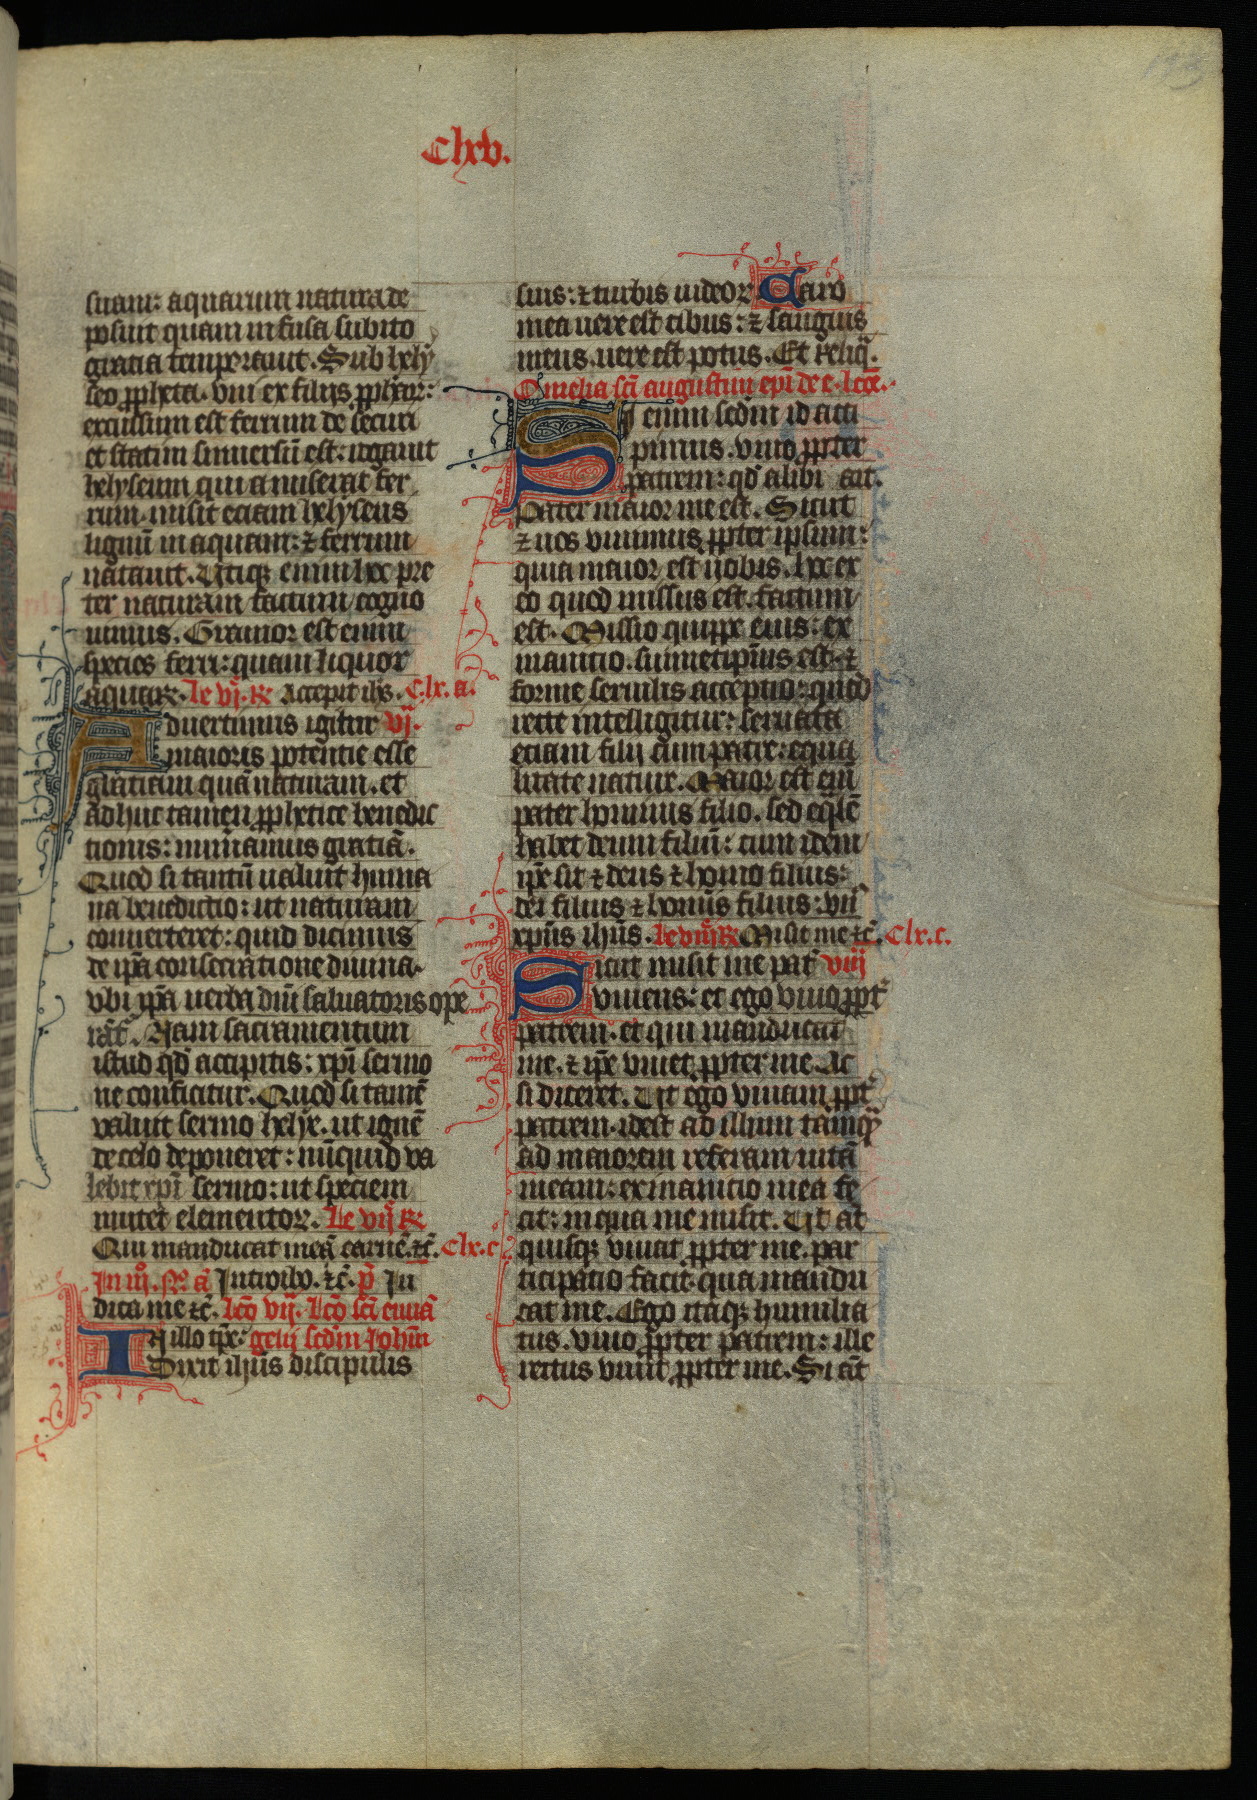 Clxv.
suam: aquarum natura de
posuit quam infusa subito
gratia temperauit. Sub hely
seo ꝓpheta. vni ex filijs ꝓphetar:
excussum est ferrum de securi
et statim sinuersū est: rogauit
helyseum qui amiserat fer
rum. misit eciam helyseus
lignū in aquam: ⁊ ferrum
natauit. Utiqꝫ enim hoc pre
ter naturam factum cogno
uimus. Grauior est enim
species ferri: quam liquor
aquarꝝ. le vj. ℟ Accepit ihs. C.lx.a.
Aduertimus igitur vij.
maioris potentie esse
gratiam quā naturam. et
adhuc tamen ꝓphetice benedic
tionis: numeramus gratiā.
Quod si tantū ualuit huma
na benedictio: ut naturam
conuerteret: quid dicimus
de ipā consecratione diuina.
vbi ipā uerba dnī saluatoris ope
rāt᷑. Nam sacramentum
istud qđ accipitis: xpī sermo
ne conficitur. Quod si tamē
valuit sermo helye. ut ignē
de celo deponeret: nūquid va
lebit xpī sermo: ut speciem
mutet elementoꝝ. le vij ℟
Qui manducat meā carnē. ⁊c̄. Clx.c
In iij. N. ā Introibo. ⁊c̄. p̄ Iu
dica me ⁊c̄. lcō vij. lcō scī euuā
IN illo tp̄e: gelij scdm Iohm
Dixit ihus discipulis
suis: ⁊ turbis iudeoꝝ Caro
mea uere est cibus: ⁊ sanguis
meus. uere est potus. Et reliq̄.
Omelia scī augustini epī de e. lcōe.
Si enim scdm id acci
pimus. viuo ꝓpter
patrem: qđ alibi ait.
Pater maior me est. Sicut
⁊ nos viuimus ꝓpter ipsum:
quia maior est nobis. hoc ex
eo quod missus est. factum
est. Missio quippe eius: ex
inanitio. suimetipsius est. ⁊
forme seruilis acceptio: quod
recte intelligitur: seruata
eciam filij cum patre: equa
litate nature. Maior est eni
pater hominis filio. sed eqlē
habet deum filiū: cum idem
ipe sit ⁊ deus ⁊ homo filius:
dei filius ⁊ hominis filius: vn
xpus ihus. le viij ℟ Misit me ⁊c̄. Clx.c.
Sicut misit me pat᷑ viij
viuens: et ego viuo ꝓpt᷑
patrem. et qui manducat
me. ⁊ ipe viuet ꝓpter me. Ac
si diceret. Ut ego viuam ꝓpt᷑
patrem. idest ad illum tamqꝫ
ad maiorem referam uitā
meam: exinanitio mea fe
cit: in qua me misit. Ut aut
quisqꝫ viuat ꝓpter me. par
ticipatio facit. qua mandu
cat me. Ego itaqꝫ humilia
tus. viuo ꝓpter patrem: ille
rectus viuit ꝓpter me. Si aūt